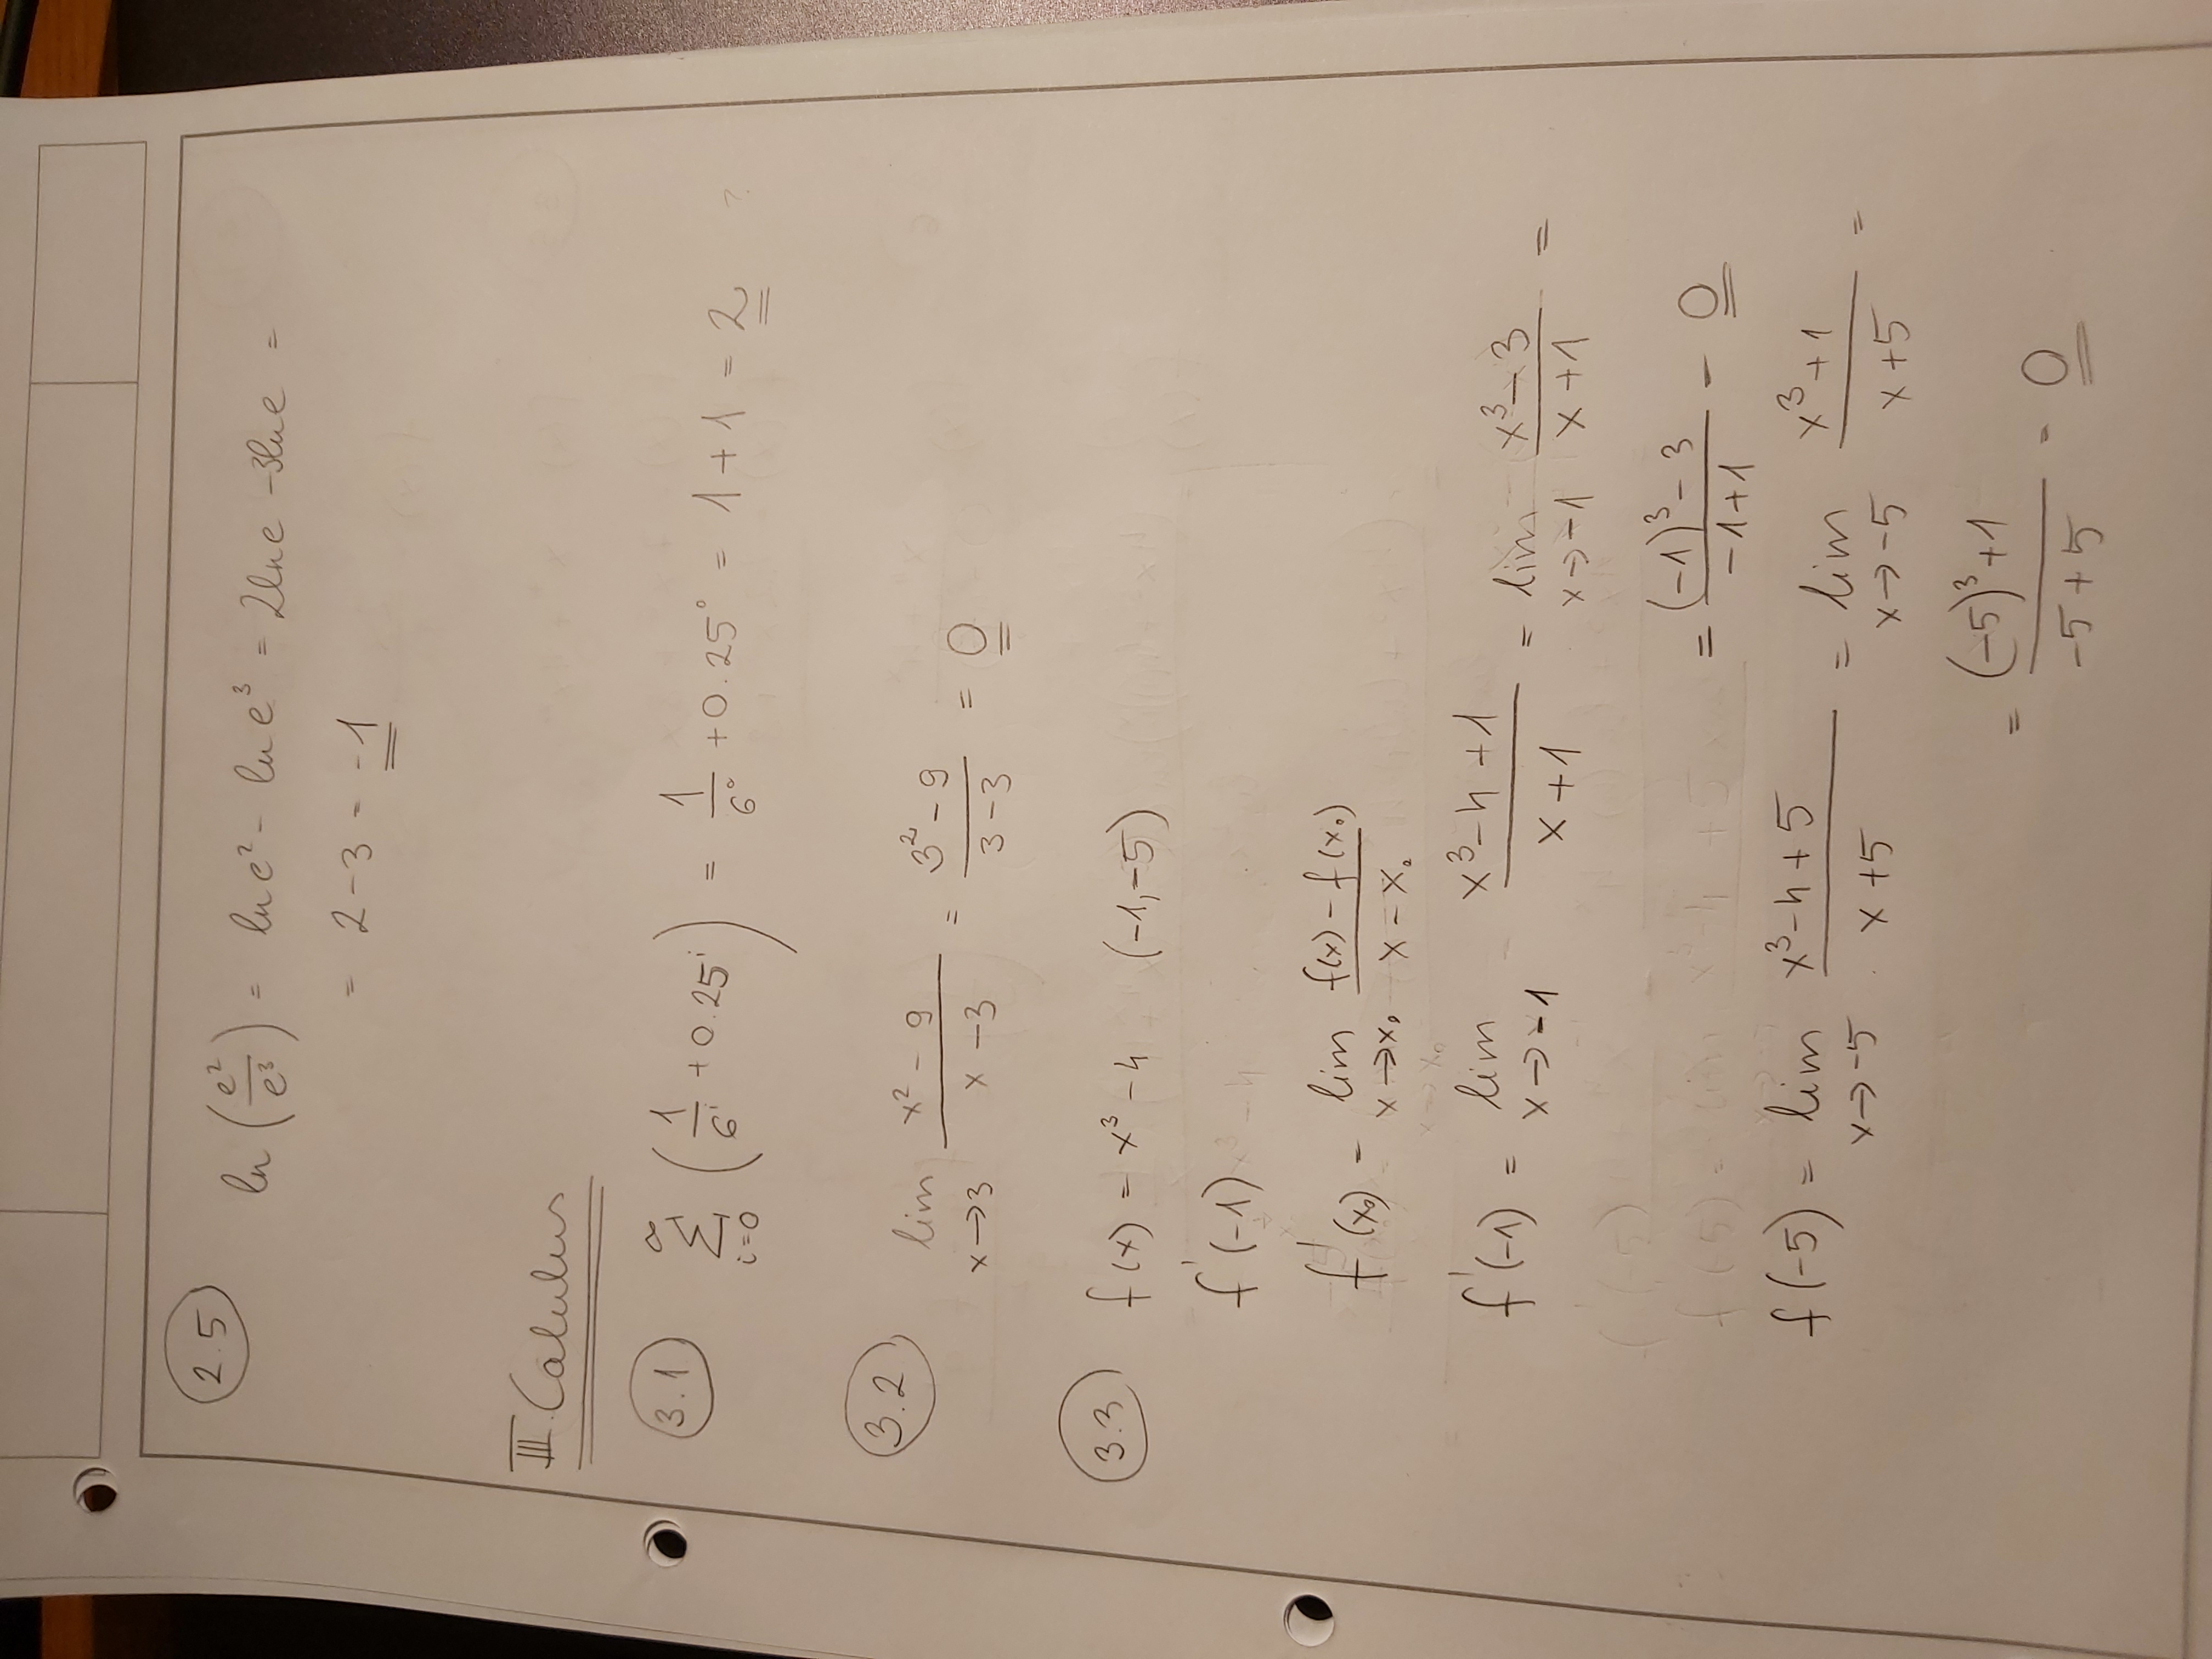 2.5 ln (e²/e³) = ln e² - ln e³ = 2ln e - 3ln e =
= 2 - 3 = -1
III. Calulus
3.1 ∞ Σ i=0 (1/6ⁱ + 0.25ⁱ) = 1/6⁰ + 0.25⁰ = 1 + 1 = 2 ?
3.2 lim x→3 (x² - 9)/(x - 3) = (3² - 9)/(3 - 3) = 0
3.3 f(x) = x³ - 4 (-1, -5)
f'(-1)
f'(x₀) = lim x→x₀ (f(x) - f(x₀))/(x - x₀)
f'(-1) = lim x→-1 (x³ - 4 + 1)/(x + 1) = lim x→-1 (x³ - 3)/(x + 1) =
= ((-1)³ - 3)/(-1 + 1) = 0
f(-5) = lim x→-5 (x³ - 4 + 5)/(x + 5) = lim x→-5 (x³ + 1)/(x + 5) =
= ((-5)³ + 1)/(-5 + 5) = 0